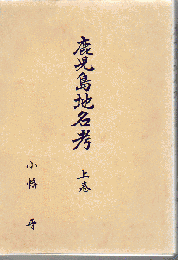 鹿児島地名考
上巻
小